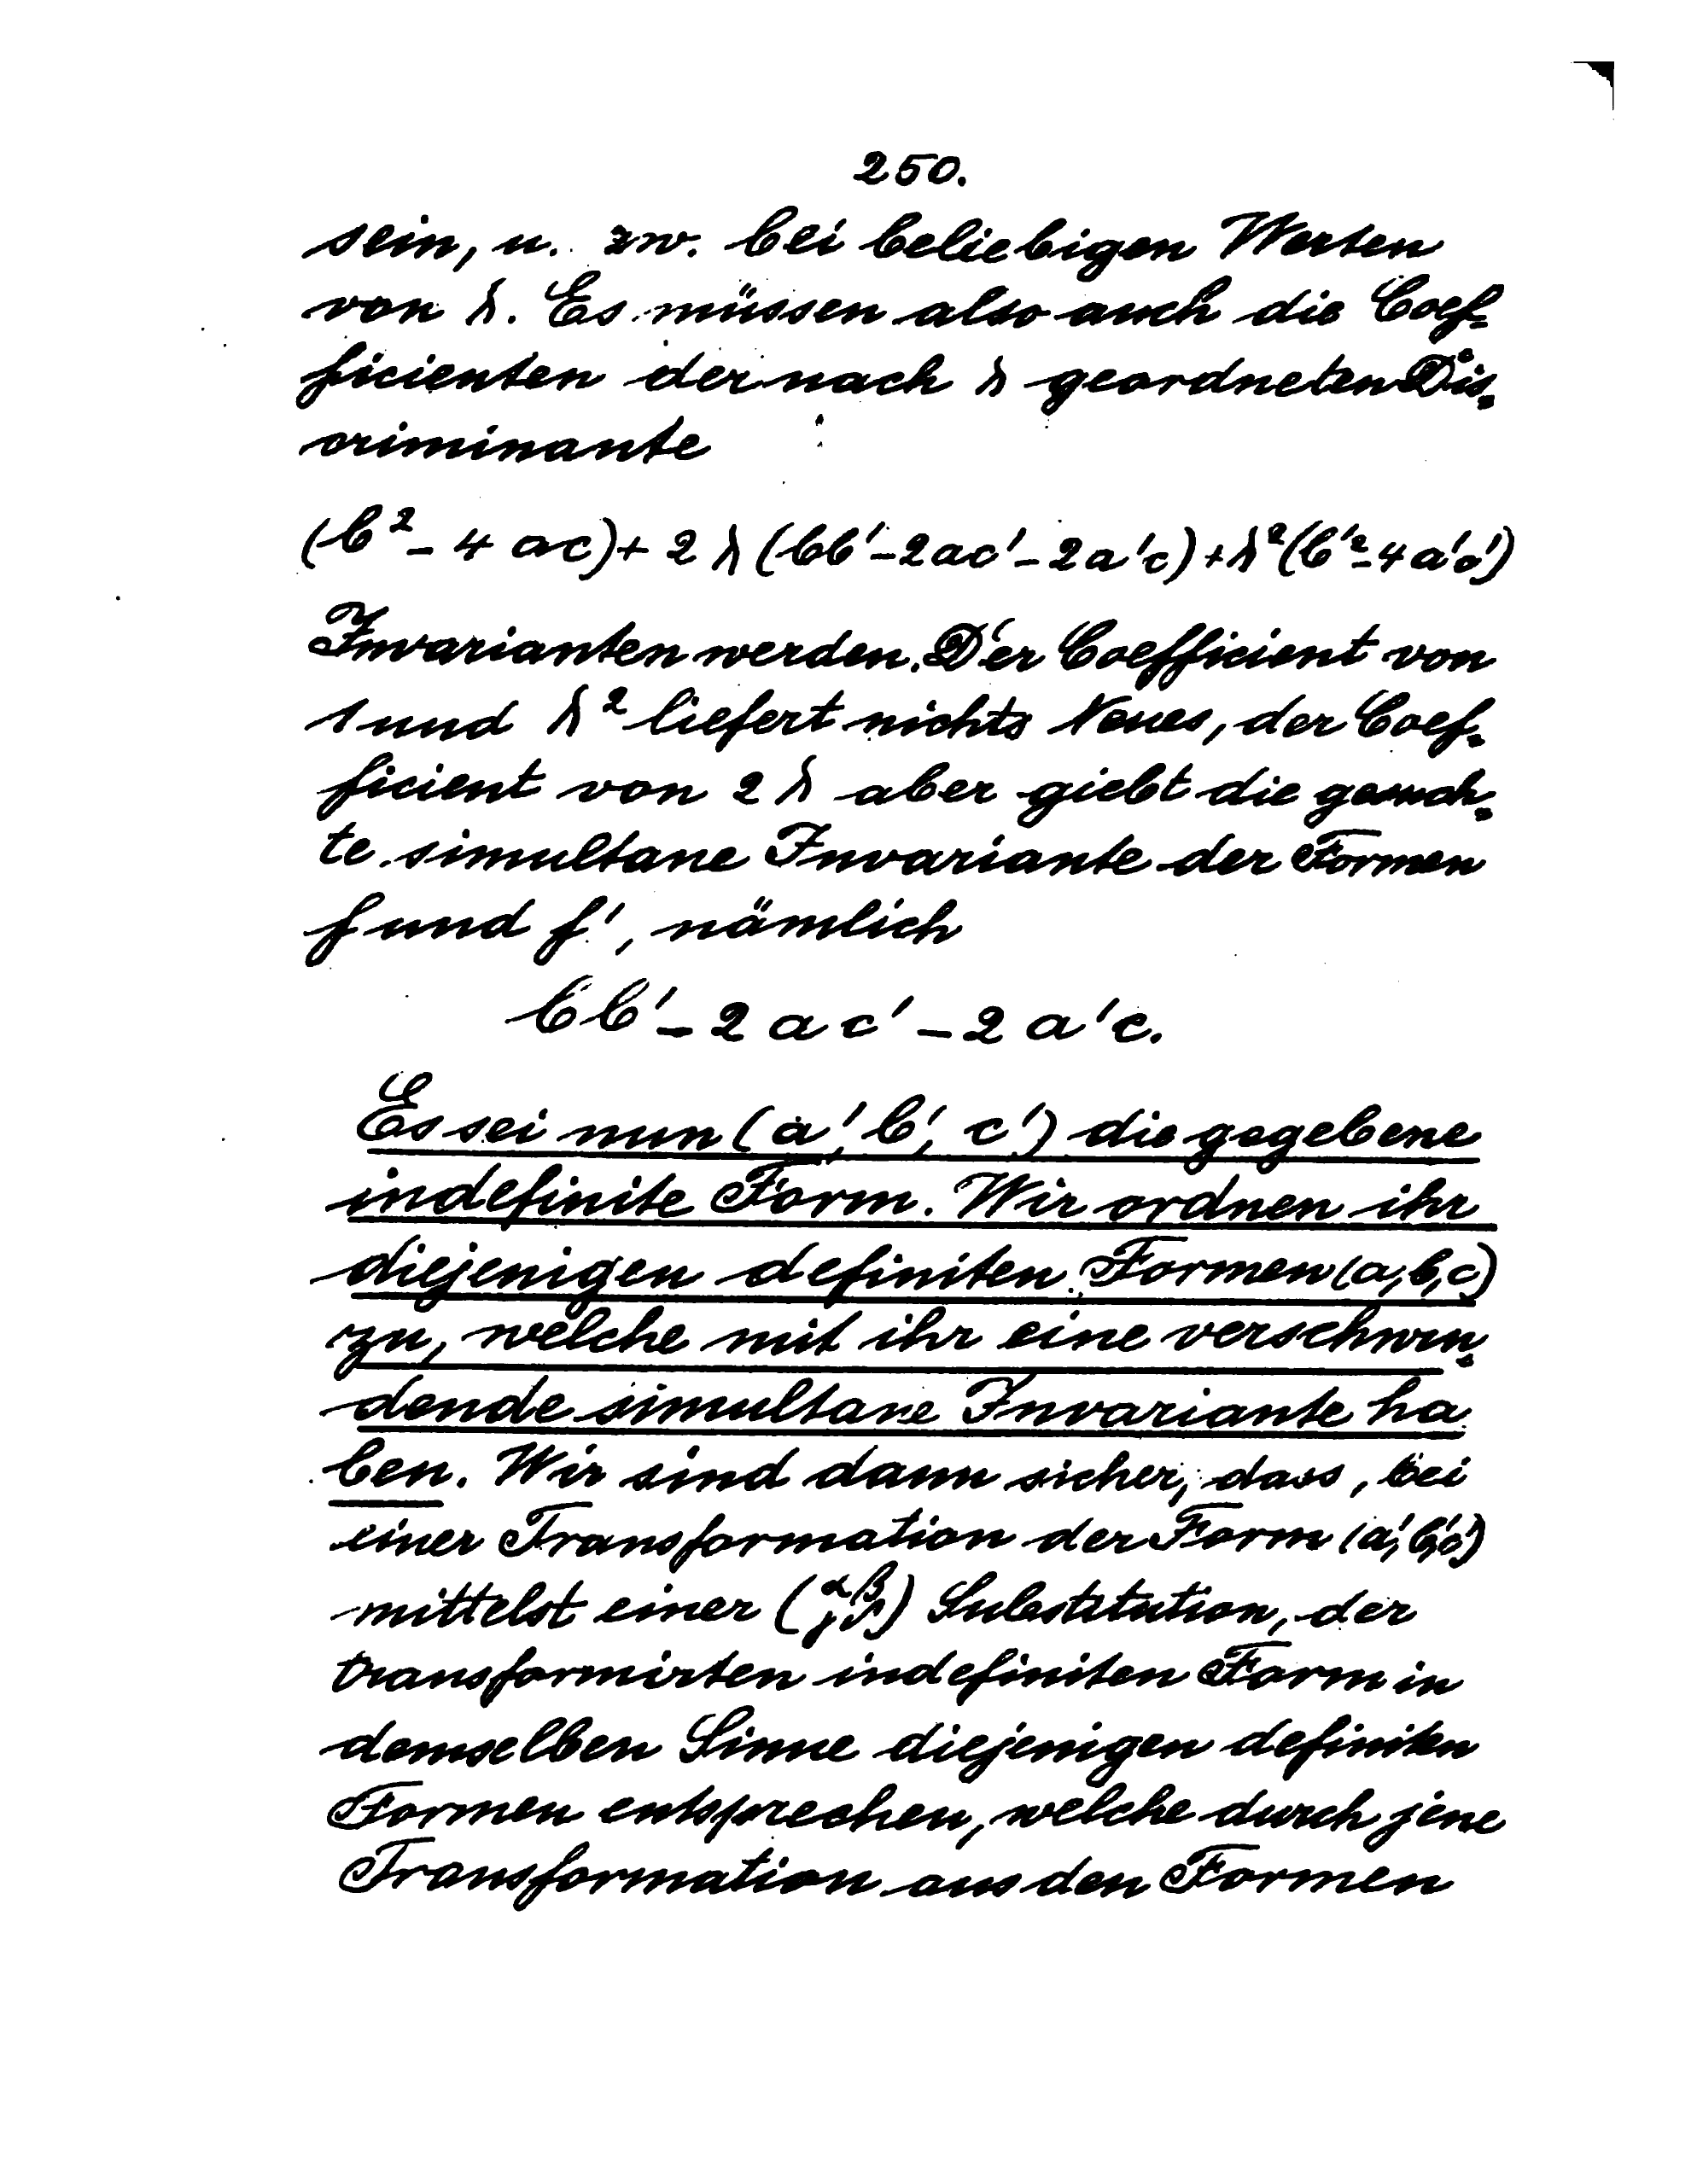 250.
sein, u. zw. bei beliebigen Werten
von λ. Es müssen also auch die Coef-
ficienten der nach λ geordneten Dis-
criminante
(b² - 4 ac) + 2 λ (bb' - 2ac' - 2a'c) + λ² (b'² - 4 a'c')
Invarianten werden. Der Coefficient von
1 und λ² liefert nichts Neues, der Coef-
ficient von 2 λ aber giebt die gesuch-
te simultane Invariante der Formen
f und f', nämlich
bb' - 2 ac' - 2 a'c.
Es sei nun (a', b', c') die gegebene
indefinite Form. Wir ordnen ihr
diejenigen definiten Formen (a, b, c)
zu, welche mit ihr eine verschwin-
dende simultane Invariante ha
ben. Wir sind dann sicher, dass, bei
einer Transformation der Form (a', b', c')
mittelst einer (α β γ δ) Substitution, der
transformirten indefiniten Form in
demselben Sinne diejenigen definiten
Formen entsprechen, welche durch jene
Transformation aus den Formen